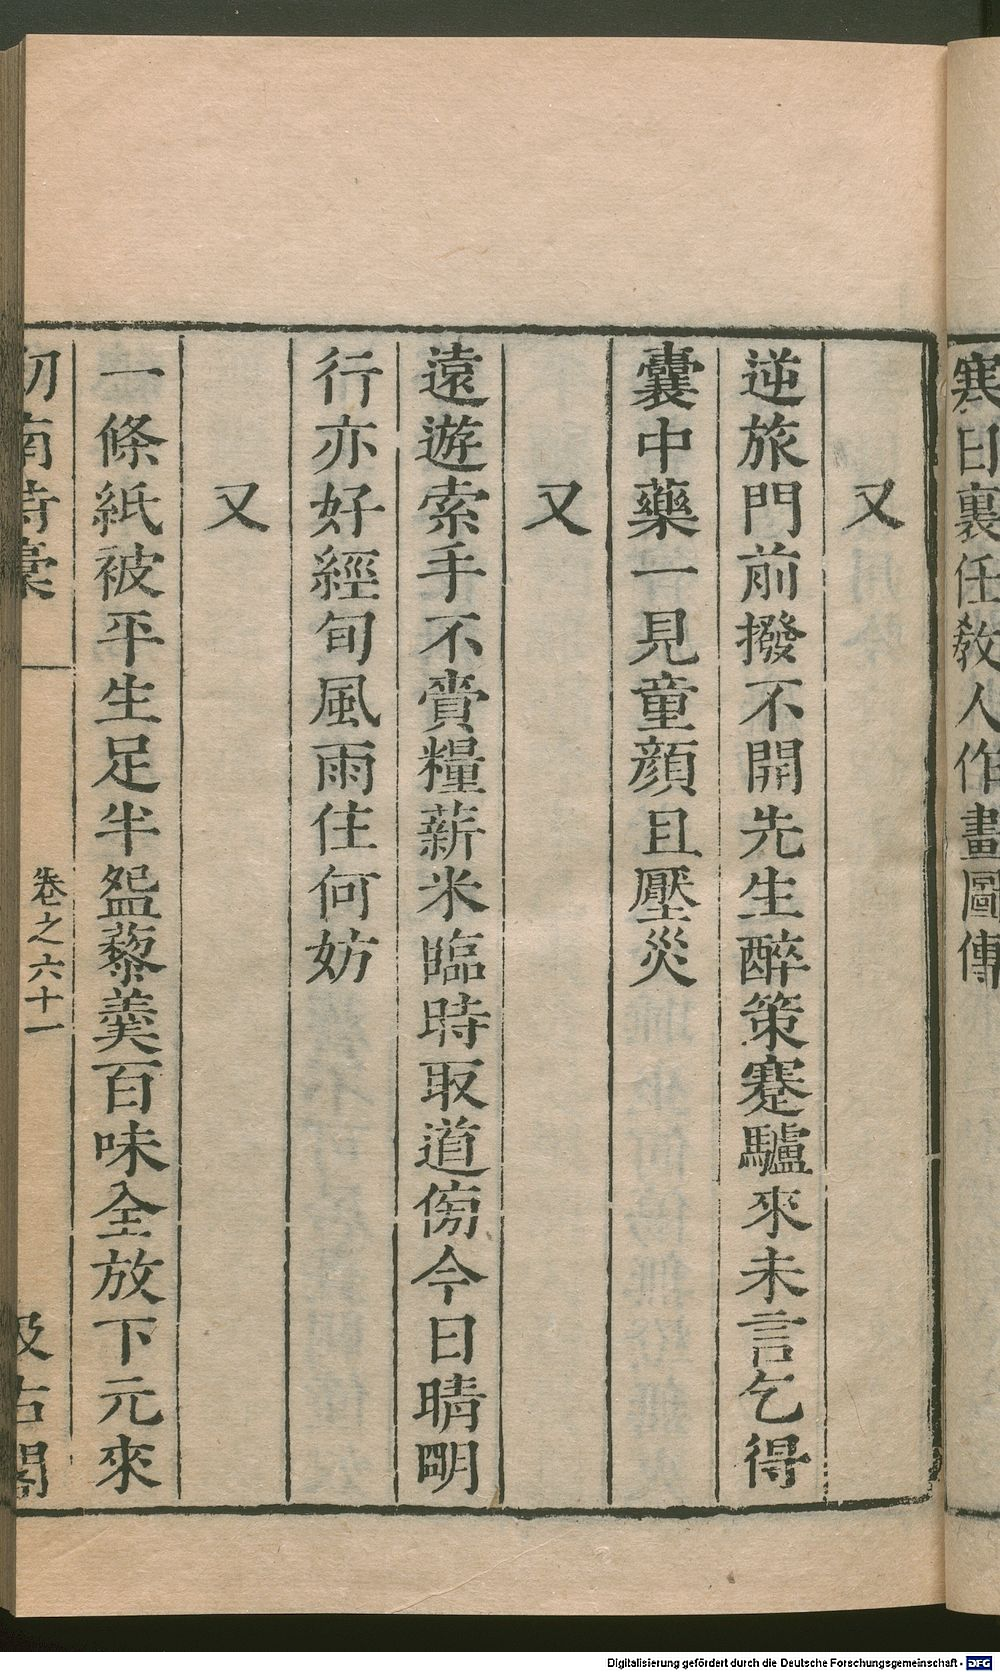 寒日裏任教人作畫圖傳
又
逆旅門前撥不開先生醉策蹇驢來未言乞得
囊中藥一見童顔且壓災
又
遠遊索手不賷糧薪米臨時取道傍今日晴明
行亦好經旬風雨住何妨
又
一條紙被平生足半盌藜羹百味全放下元來
劒南詩稾
卷之六十一
汲古閣
Digitalisierung gefördert durch die Deutsche Forschungsgemeinschaft - DFG